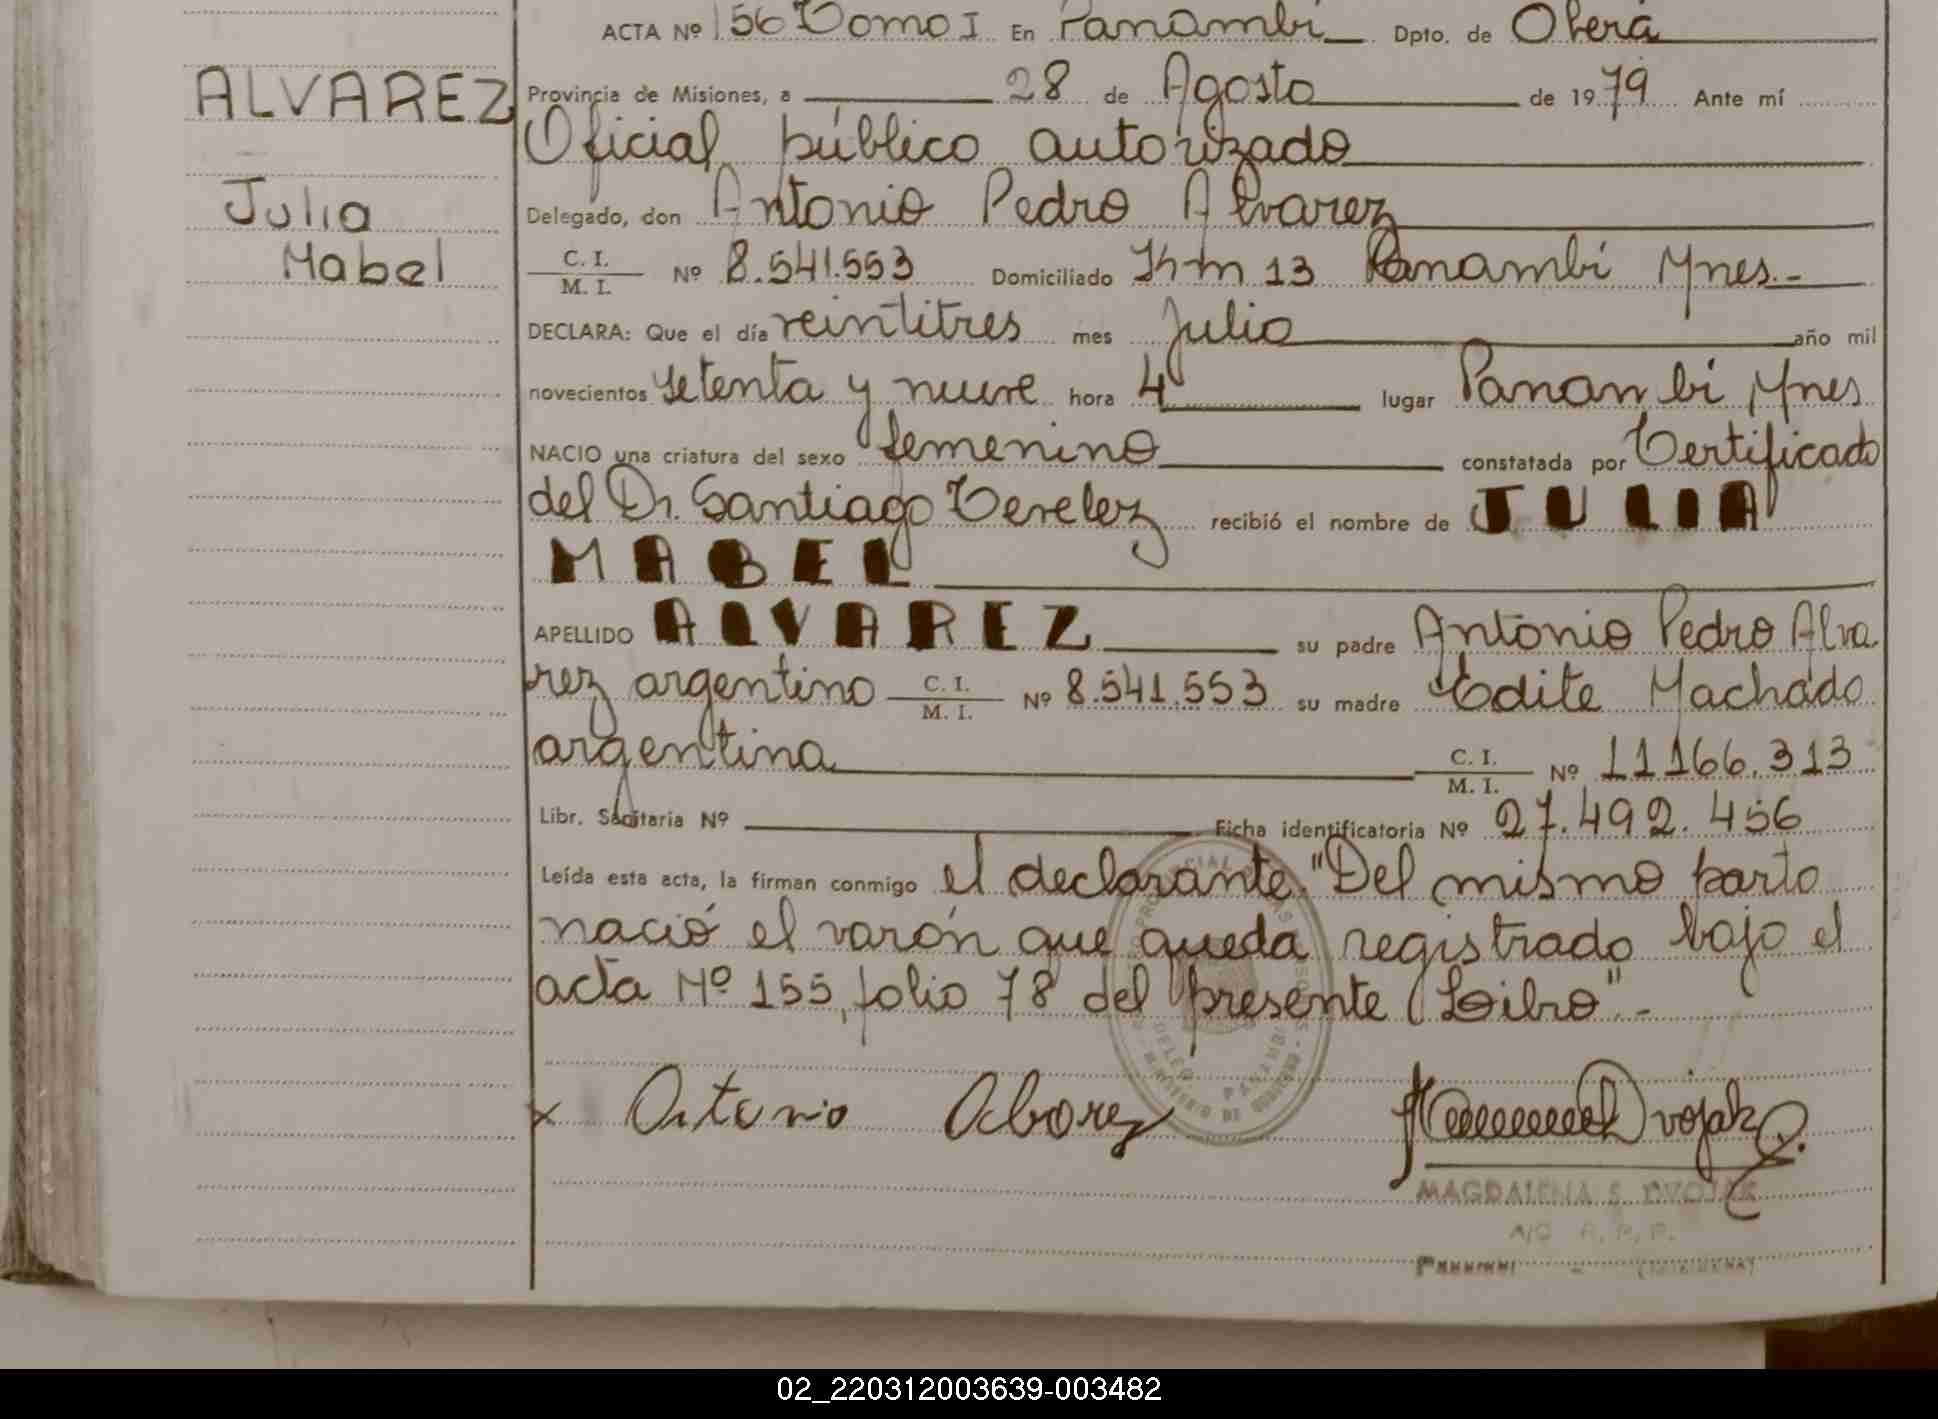 ACTA Nº 156 Tomo I En Panambí Dpto. de Oberá
ALVAREZ
Julia
Mabel
Provincia de Misiones, a 28 de Agosto de 1979 Ante mí
Oficial público autorizado
Delegado, don Antonio Pedro Alvarez
C. I. / M. I. Nº 8.541.553 Domiciliado Km 13 Panambí Mnes.-
DECLARA: Que el día veintitres mes Julio año mil
novecientos setenta y nueve hora 4 lugar Panambi Mnes
NACIO una criatura del sexo femenino constatada por Certificado
del Dr. Santiago recibió el nombre de JULIA
MABEL
APELLIDO ALVAREZ su padre Antonio Pedro Alva
rez argentino C. I. / M. I. Nº 8.541.553 su madre Edite Machado
argentina C. I. / M. I. Nº 11166.313
Libr. Sanitaria Nº Ficha identificatoria Nº 27.492.456
Leída esta acta, la firman conmigo el declarante. "Del mismo parto
nació el varón que queda registrado bajo el
acta Nº 155, folio 78 del presente Libro".-
x Antonio Alvarez Dvojak
MAGDALENA S. DVOJAK
A/C R.P.P.
02_220312003639-003482